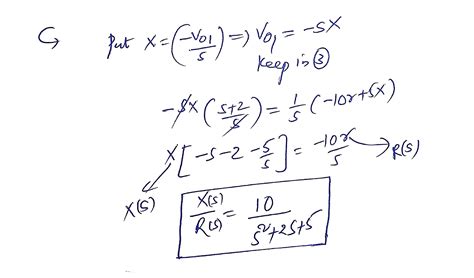 ↪ Put X = (-Vo1/s) => Vo1 = -sX
Keep in ③
-sX (s+2/s) = 1/s (-10r+5X)
X[-s-2-5/s] = -10r/s → R(s)
X(s)
X(s)/R(s) = 10/s²+2s+5